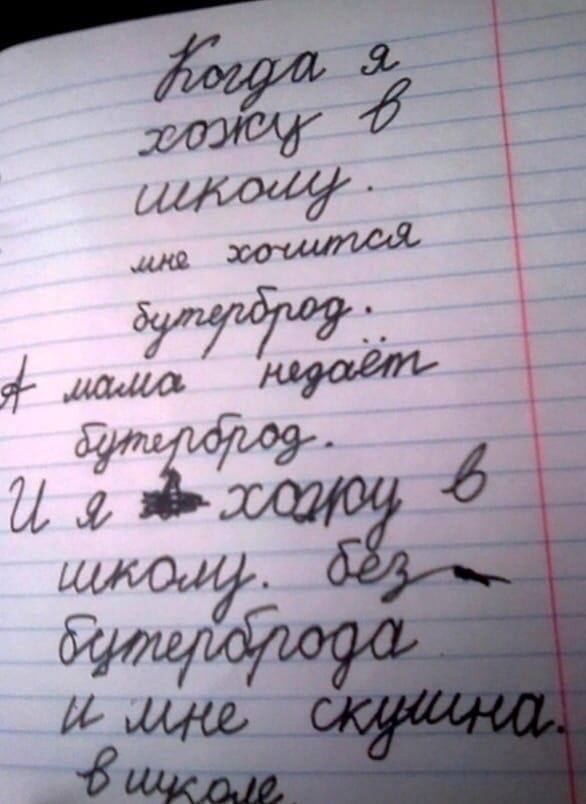 Когда я
хожу в
школу.
мне хочится
бутерброд.
А мама недаёт
бутерброд.
И я хожу в
школу. без
бутерброда
и мне скушна.
в школе